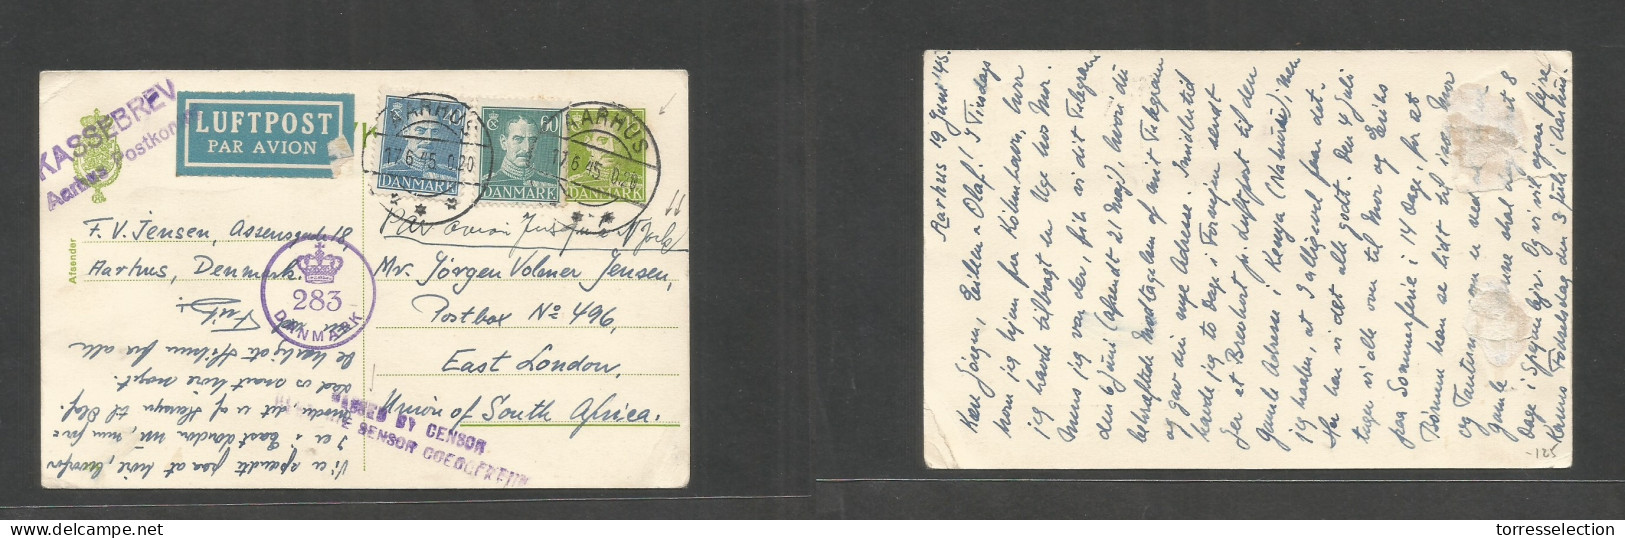 KASSEBREV
Aarhus Postkontor
LUFTPOST
PAR AVION
AARHUS
17.6.45.0.20
DANMARK
60
DANMARK
AARHUS
17.6.45.
DANMARK
Afsender
F. V. Jensen, Assensgade 18
Aarhus, Denmark.
283
DANMARK
Par avion
Mr. Jörgen Volmer Jensen,
Postbox No 496,
East London,
Union of South Africa.
PASSED BY CENSOR
DEUR DIE SENSOR GOEDGEKEUR
Vi er spændt paa at höre, hvorfor
I er i East London nu, men for-
moder det er af Hensyn til Olaf.
Lad os snart höre noget.
De kærligste Hilsner fra alle
Aarhus 19 Juni 1945.
Kære Jörgen, Eileen & Olaf! I Tirsdags
kom jeg hjem fra Köbenhavn, hvor
jeg havde tilbragt en Uge hos Mor.
Mens jeg var der, fik vi dit Telegram
den 6 Juni (afsendt 21 Maj), hvori du
bekræftede Modtagelsen af mit Telegram
og gav din nye Adresse. Imidlertid
havde jeg to Dage i Forvejen sendt
Jer et Brevkort pr. Luftpost til den
gamle Adresse i Kenya (Nakuru), men
jeg haaber, at I alligevel faar det.
Her har vi det alle godt. Den 4 Juli
tager vi alle over til Mor og Eriks
paa Sommerferie i 14 Dage, for at
Börnene kan se lidt til især Mor
og Tanterne
gamle skal 8
Dage i Spejderlejr. Og vi vil ogsaa fejre
Karens Födselsdag den 3 Juli i Aarhus.
-125
torresselection